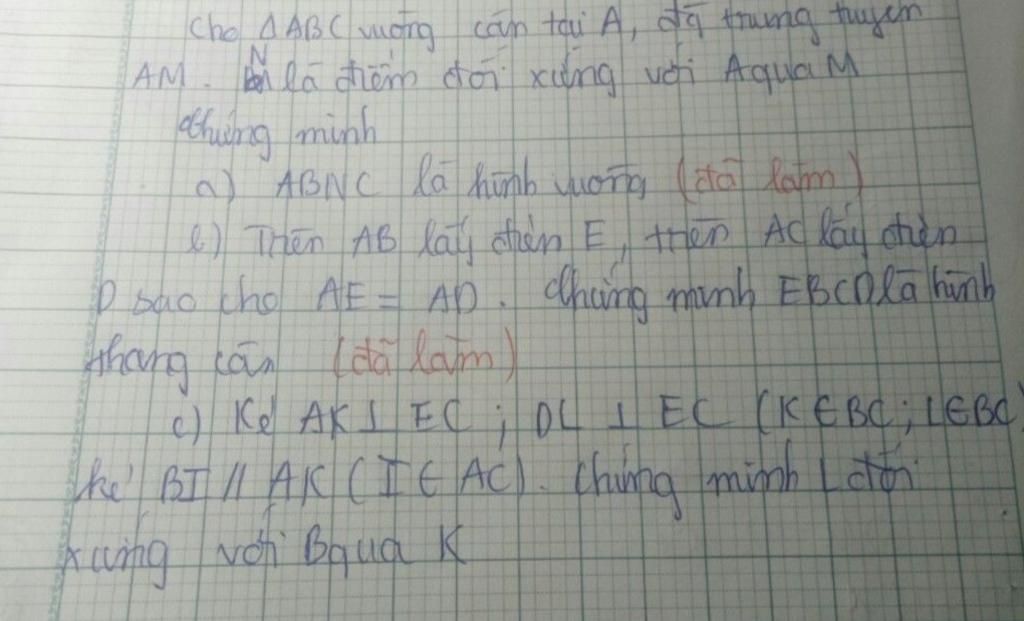 Cho ΔABC vuông cân tại A, đg trung tuyến
AM. N là điểm đối xứng với A qua M
Chứng minh
a) ABNC là hình vuông (đã làm)
b) Trên AB lấy điểm E, trên AC lấy điểm
D sao cho AE = AD. Chứng minh EBCD là hình
thang cân (đã làm)
c) Kẻ AK ⊥ EC ; DL ⊥ EC (K ∈ BC ; L ∈ BC)
kẻ BI // AK (I ∈ AC). Chứng minh L đối
xứng với B qua K